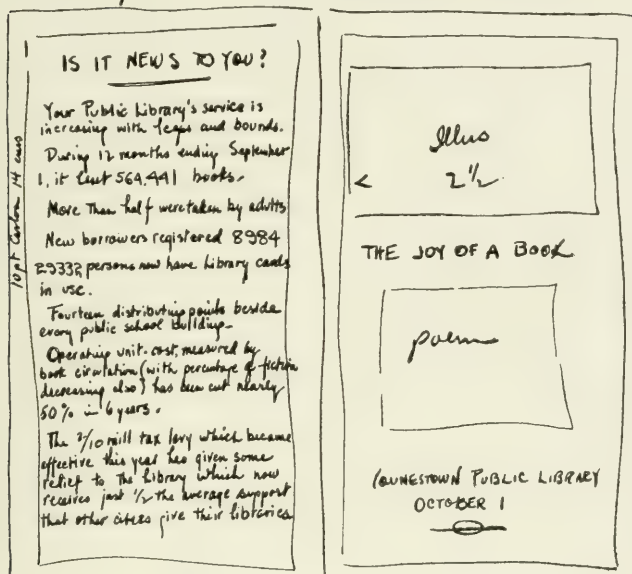 IS IT NEWS TO YOU?
Your Public Library's service is
increasing with leaps and bounds.
During 12 months ending September
1, it lent 564,441 books.
More than half were taken by adults
New borrowers registered 8984
29332 persons now have Library cards
in use.
Fourteen distributing points beside
every public school building.
Operating unit-cost, measured by
book circulation (with percentage of fiction
decreasing also) has been cut nearly
50% in 6 years.
The 2/10 mill tax levy which became
effective this year has given some
relief to the Library which now
receives just 1/2 the average support
that other cities give their libraries
10 pt Caslon 14 ems
Illus
< 2 1/2
THE JOY OF A BOOK
poem
YOUNGSTOWN PUBLIC LIBRARY
OCTOBER 1